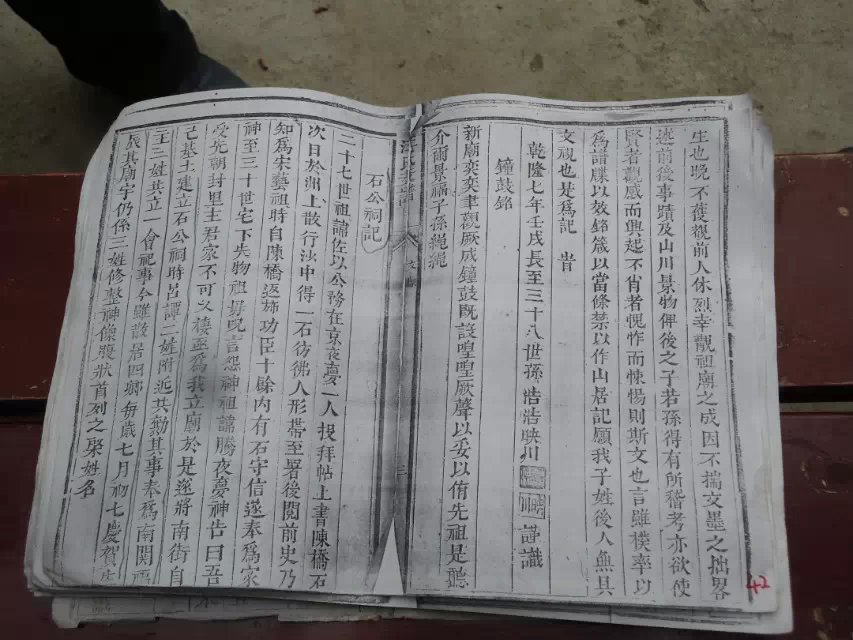 生也晚不獲觀前人休烈幸覩祖廟之成因不揣文墨之拙畧
述前後事蹟及山川景物俾後之子若孫得有所稽考亦欲使
賢者觀感而興起不肖者愧怍而悚惕則斯文也言雖樸率以
為譜牒以效銘箴以當條禁以作山居記願我子姓後人無具
文視也是為記 旹
乾隆七年壬戌長至三十八世孫 浩浩映川 謹識
鐘鼓銘
新廟奕奕聿觀厥成鐘鼓既設喤喤厥聲以妥以侑先祖是聽
介爾景福子孫繩繩
氏
石公祠記
二十七世祖諱佐以公務在京夜夢一人投拜帖上書陳橋石
次日於洲上散行沙中得一石彷彿人形帶至署後閱前史乃
知為宋藝祖時自陳橋返斾功臣十餘內有石守信遂奉為家
神至三十世宅下失物祖母晚言怨神祖諱勝夜夢神告曰吾
受先朝封里主君家不可久棲亟為我立廟於是遂將南街自
己基土建立石公祠時呂譚二姓附近共勷其事奉為南關福
主三姓共立一會祀事今雖散居四鄉每歲七月初七慶賀生
辰其廟宇仍係三姓修整神像牌狀首列之梁姓名
42